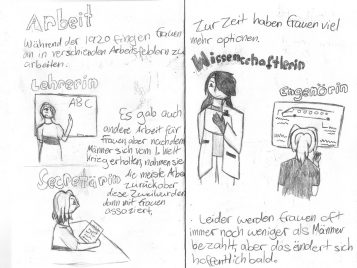 Arbeit
Während der 1920 fingen Frauen
an in verschieden Arbeitsfeldern zu
arbeiten.
Lehrerin
ABC
Es gab auch
andere Arbeit für
Frauen aber nachdem
Männer sich vom 1. Welt
krieg erholten, nahmen sie
die meiste Arbeit
zurück aber
diese Zwei wurden
dann mit Frauen
assoziiert.
Secretärin
Zur Zeit haben Frauen viel
mehr optionen.
Wissenschaftlerin
engenörin
. Leider werden Frauen oft
immer noch weniger als Männer
bezahlt, aber das ändert sich
hoffentlich bald.